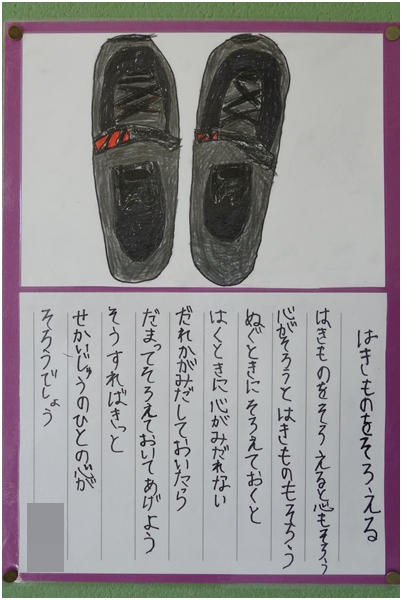 はきものをそろえる
はきものをそろえると心もそろう
心がそろうとはきものもそろう
ぬぐときにそろえておくと
はくときに心がみだれない
だれかがみだしておいたら
だまってそろえておいてあげよう
そうすればきっと
せかいじゅうのひとの心が
そろうでしょう